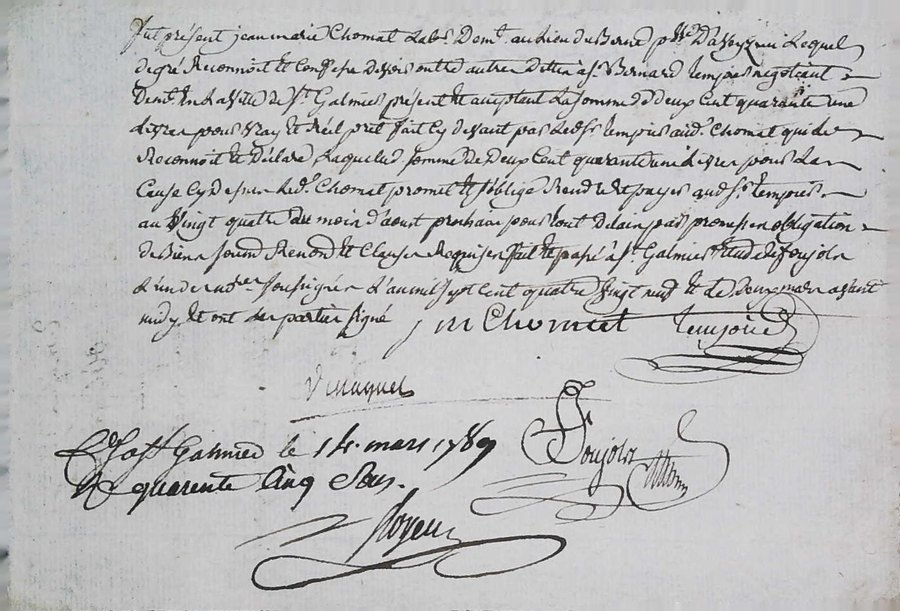 fut présent jean marie Chomat Labr. Demt. au Lieu du Berne psse. D'aveyzieu Lequel
degré Reconnoit et Confesse devoir entre autre Dette à sr. Bernard Lempois negotiant
Demt. En La ville de st. Galmier présent et aceptant La somme de deux Cent quarante une
Livres pour vray et réel prêt fait Cy devant par Ledt. sr Lempois audt. Chomat qui le
Reconnoit et déclare Laquelle somme de deux Cent quarante une Livres pour La
Cause Cy dessus Ledt. Chomat promet et s'oblige rendre et payer audt. sr. Lempois
au vingt quatre du mois d'aout prochain pour tout Delais par promesse obligation
de Biens soumon Renond et Clause Requises fait et passé à st. Galmier Etude de foujols
L'un des nores soussignés L'an mil sept cent quatre vingt neuf et le deux mars avant
midy et ont Les parties signé j m Chomat Lempois
foujols
Cé à st Galmier le 14. mars 1789
quarente Cinq Sous.